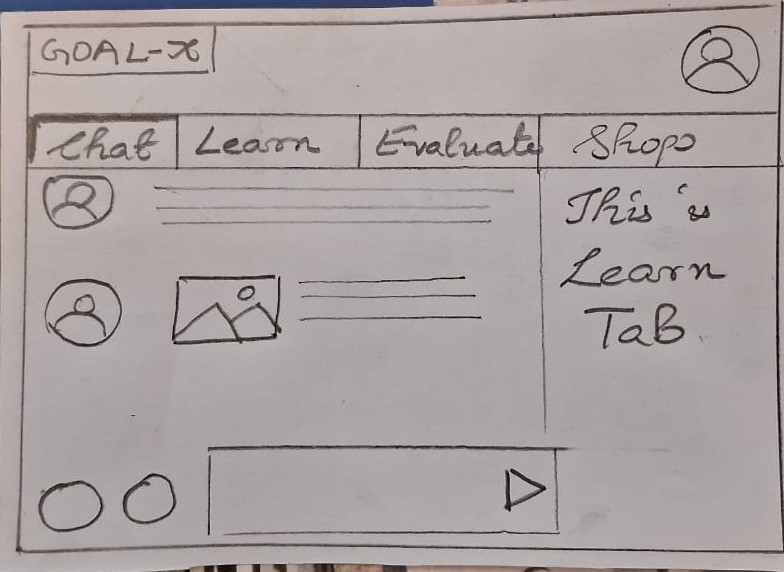 GOAL-X
Chat Learn Evaluate Shops
This is
Learn
TaB.